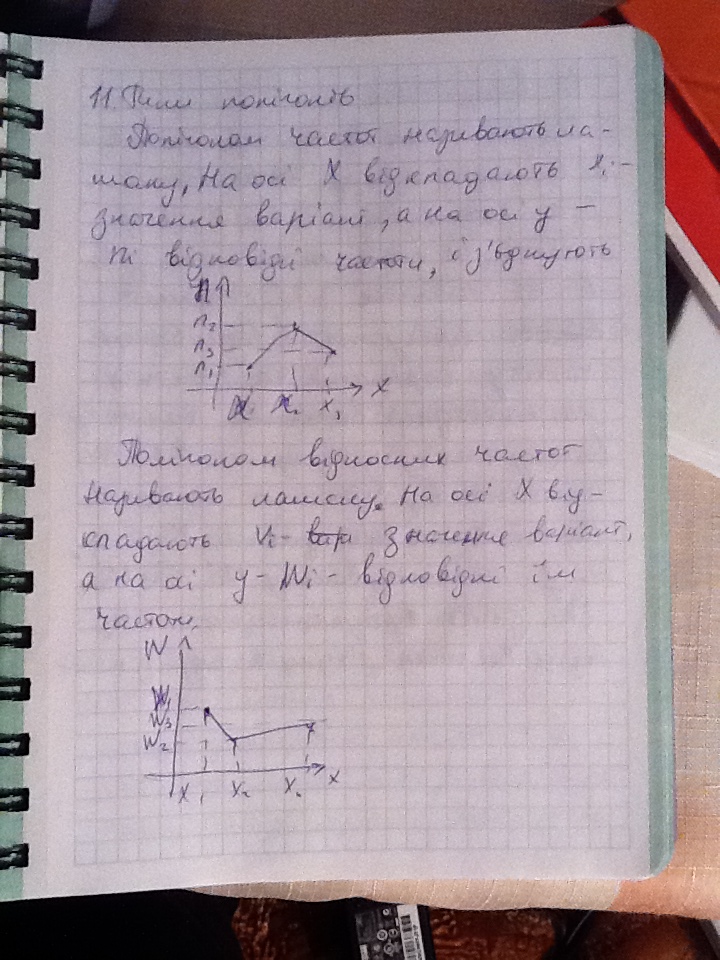 11
Полігоном частот називають ла-
ману, на осі x відкладають xi -
значення варіант, а на осі y -
ni відповідні частоти, з'єднують
n
n2
n3
n1
x2 x3 x
Полігоном відносних частот
називають ламану. На осі x від-
кладають значення варіант,
а на осі y - Wi - відповідні їм
частоти.
W
W1
W3
W2
x1 x2 x